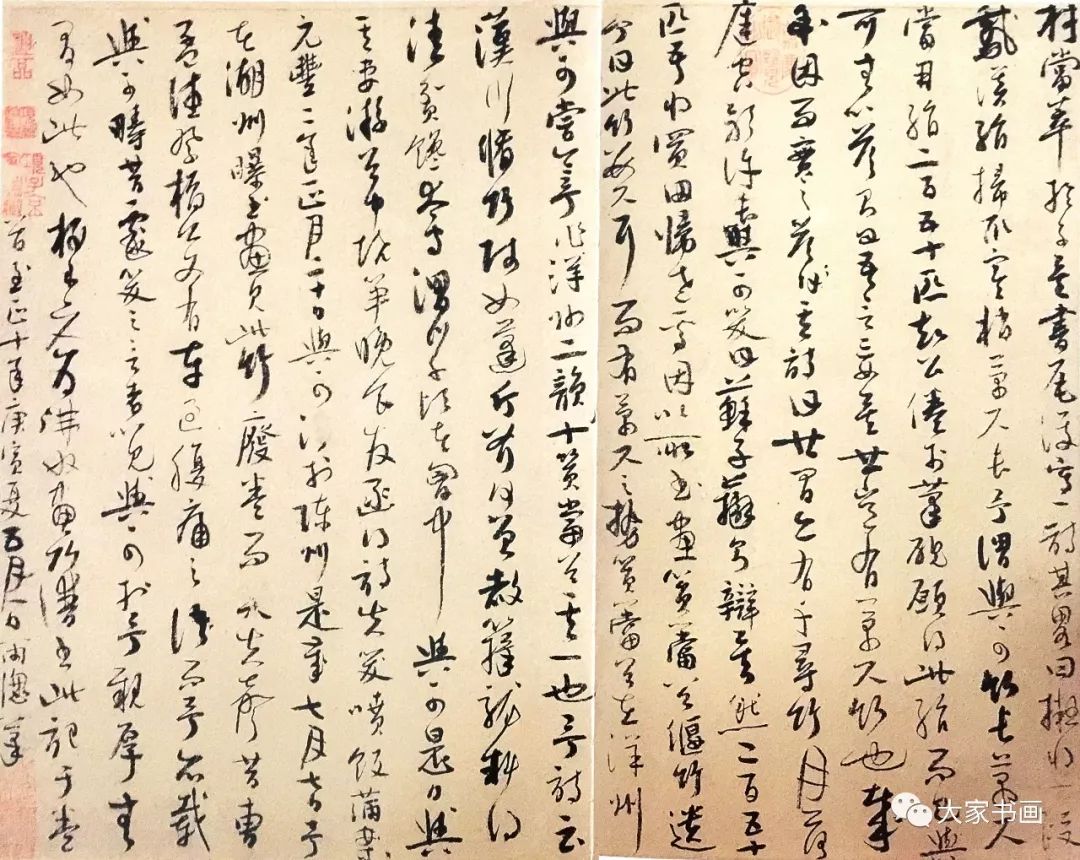 材當萃於子矣書尾復寫一詩其略曰擬將一段
鵝溪絹掃取寒梢萬尺長予謂與可竹長萬尺
當用絹二百五十匹知公倦於筆硯願得此絹而已與
可無以答則曰吾言妄矣世豈有萬尺竹也哉
余因而實之答其詩曰世間亦有千尋竹月落
庭空影許長與可笑曰蘇子辯則辯矣然二百五十
匹吾將買田歸老焉因以所畫篔簹谷偃竹遺
予曰此竹數尺耳而有萬尺之勢篔簹谷在洋州
與可嘗令予作洋州二韻十篔簹谷其一也予詩云
漢川脩竹賤如蓬斤斧何曾赦籜龍料得
清貧饞太守渭川千畝在胸中與可是日與
其妻游谷中燒筍晚食發函得詩失笑噴飯滿案
元豐二年正月二十日與可沒於陳州是歲七月七日予
在湖州曝書畫見此竹廢卷而哭失聲昔曹
孟德祭橋公文有車過腹痛之語而予亦載
與可疇昔戲笑之言者以見與可於予親厚無
間如此也 畫竹 書此記于卷
至正十年庚寅夏五月一日 筆
大家书画